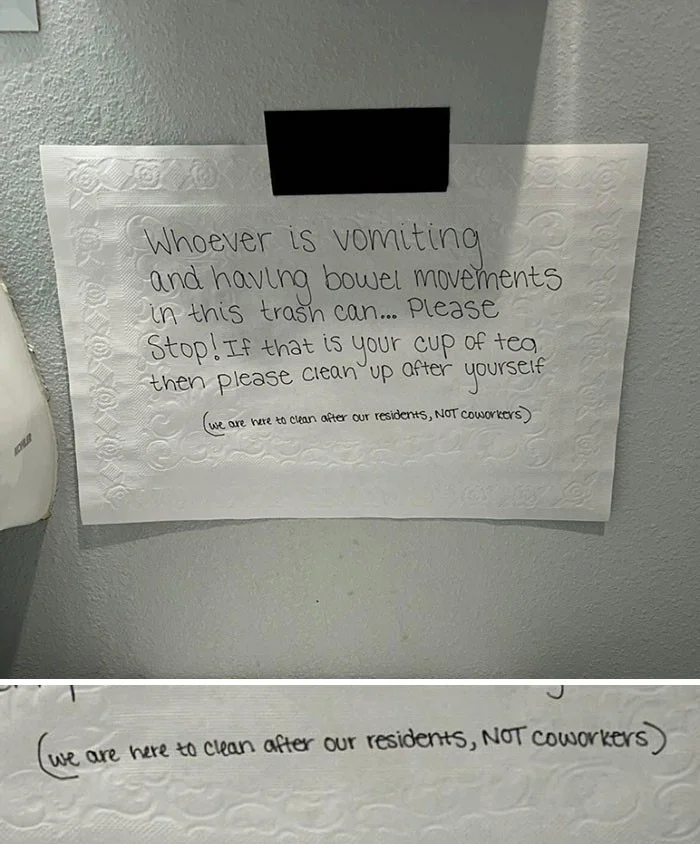 Whoever is vomiting
and having bowel movements
in this trash can... Please
Stop! If that is your cup of tea
then please clean up after yourself
(we are here to clean after our residents, NOT coworkers)
KOHLER
(we are here to clean after our residents, NOT coworkers)